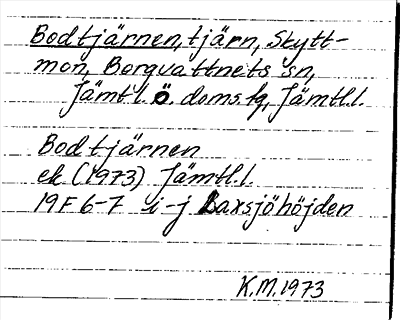 Bodtjärnen, tjärn, Skytt-
mon, Borgvattnets sn,
Jämtl. ö. doms.tg, Jämtl.l.
Bodtjärnen
ek (1973) Jämtl.l
19F 6-7 i-j Laxsjöhöjden
K.M. 1973